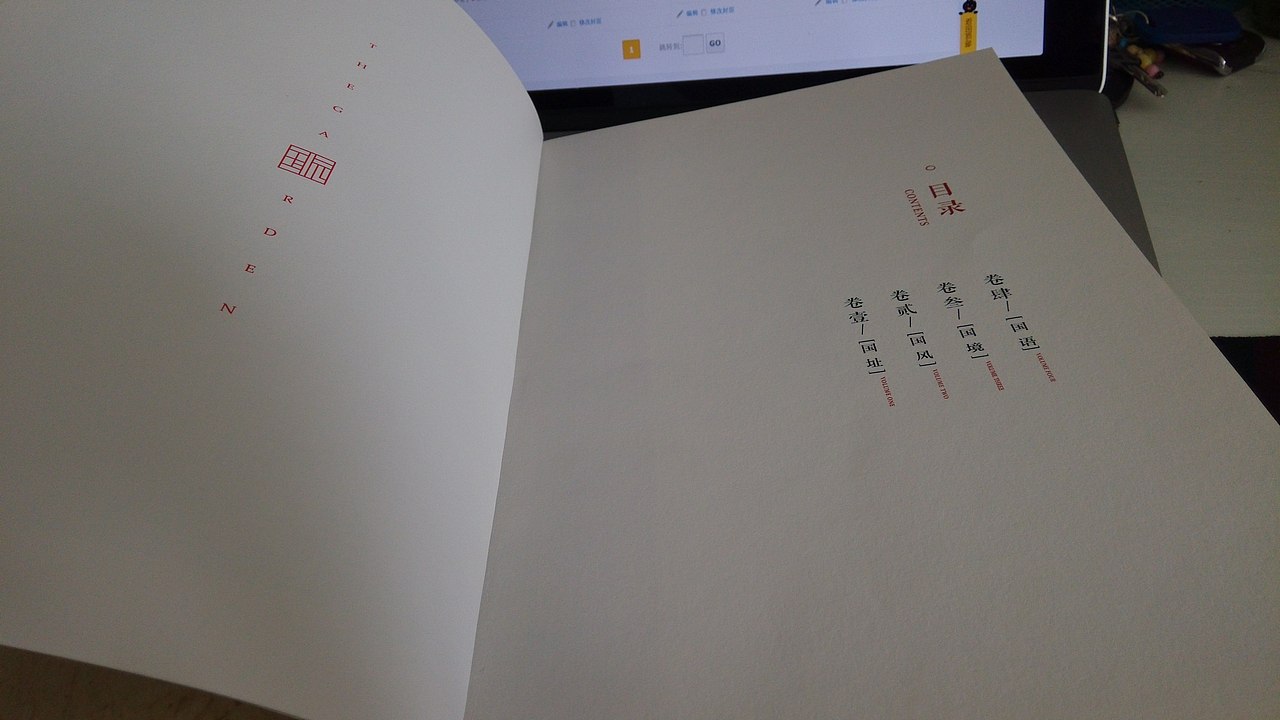 THE GARDEN
国园
目录
CONTENTS
卷壹—[国址] VOLUME ONE
卷贰—[国风] VOLUME TWO
卷叁—[国境] VOLUME THREE
卷肆—[国语] VOLUME FOUR
编辑 修改封面
编辑 修改封面
1 跳转到: GO